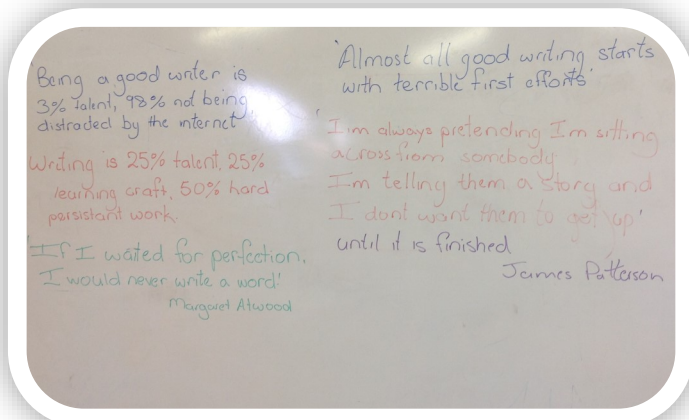 'Being a good writer is
3% talent, 98% not being
distracted by the internet'
Writing is 25% talent, 25%
learning craft, 50% hard
persistant work.
'If I waited for perfection,
I would never write a word!'
Margaret Atwood
'Almost all good writing starts
with terrible first efforts'
'I'm always pretending I'm sitting
across from somebody
I'm telling them a story and
I dont want them to get up'
until it is finished
James Patterson